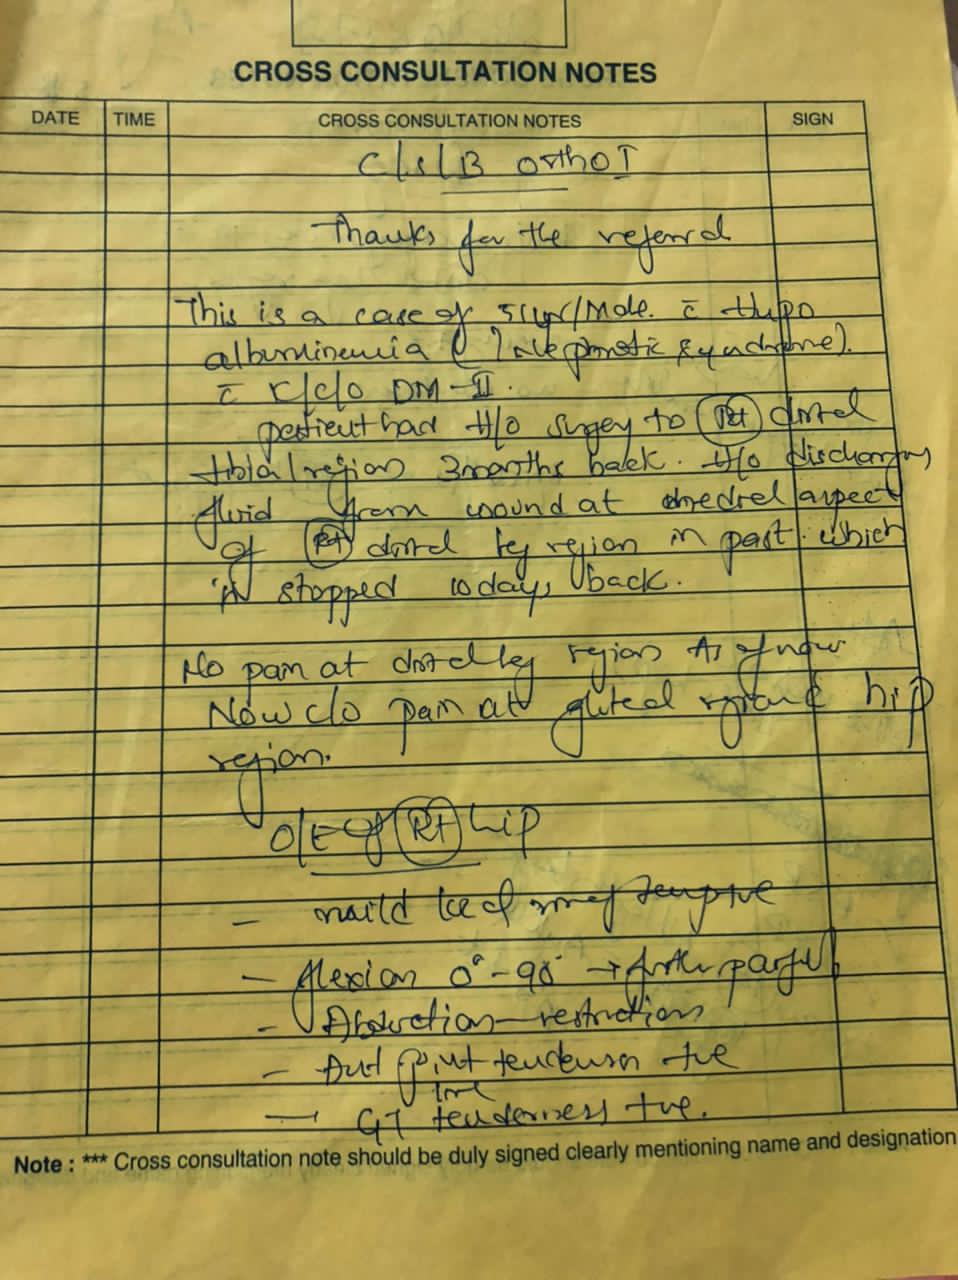 CROSS CONSULTATION NOTES
DATE TIME CROSS CONSULTATION NOTES SIGN
C/S/B Ortho I
Thanks for the referral
This is a case of 51yr/Male. c̄ Hypo
albuminemia (? Nephrotic syndrome).
c̄ K/c/o DM-II.
patient had H/o surgey to Rt distal
tibial region 3months back. H/o discharging
fluid from wound at medial aspect
of Rt distal leg region in past. which
is stopped 10days back.
No pain at distal leg region As of now
Now c/o pain at gluteal region & hip
region.
O/E of Rt hip
- mild local temp +ve
- flexion 0°-90° → further painful
- Abduction - restriction
- And joint tenderness +ve
line
- GT tenderness +ve.
Note : *** Cross consultation note should be duly signed clearly mentioning name and designation